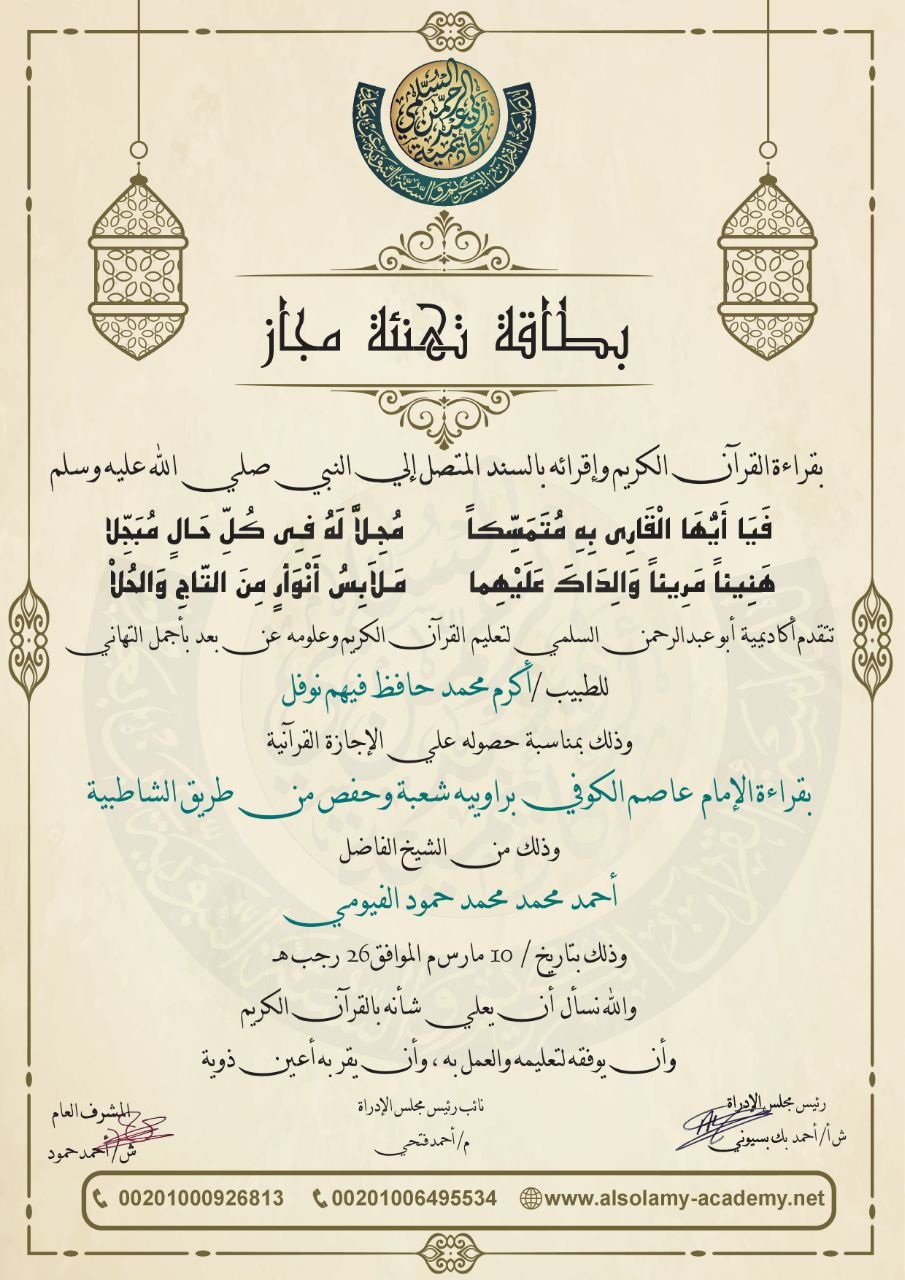 أكاديمية أبي عبد الرحمن السلمي
بطاقة تهنئة مجاز
بقراءة القرآن الكريم وإقرائه بالسند المتصل إلي النبي صلي الله عليه وسلم
فَيَا أَيُّهَا الْقَارِى بِهِ مُتَمَسِّكاً مُجِلاًّ لَهُ فِى كُلِّ حَالٍ مُبَجِّلا
هَنِيئاً مَرِيئاً وَالِدَاكَ عَلَيْهِما مَلاَبِسُ أَنْوَأرٍ مِنَ التّاجِ وَالحُلاْ
تتقدم أكاديمية أبو عبدالرحمن السلمي لتعليم القرآن الكريم وعلومه عن بعد بأجمل التهاني
للطبيب / أكرم محمد حافظ فيهم نوفل
وذلك بمناسبة حصوله علي الإجازة القرآنية
بقراءة الإمام عاصم الكوفي براوييه شعبة وحفص من طريق الشاطبية
وذلك من الشيخ الفاضل
أحمد محمد محمد حمود الفيومي
وذلك بتاريخ / 10 مارس م الموافق 26 رجب هـ
والله نسأل أن يعلي شأنه بالقرآن الكريم
وأن يوفقه لتعليمه والعمل به ، وأن يقر به أعين ذوية
رئيس مجلس الإدراة نائب رئيس مجلس الإدراة المشرف العام
ش أ / أحمد بك بسيوني م / أحمد فتحي ش / أحمد حمود
00201000926813 00201006495534 www.alsolamy-academy.net